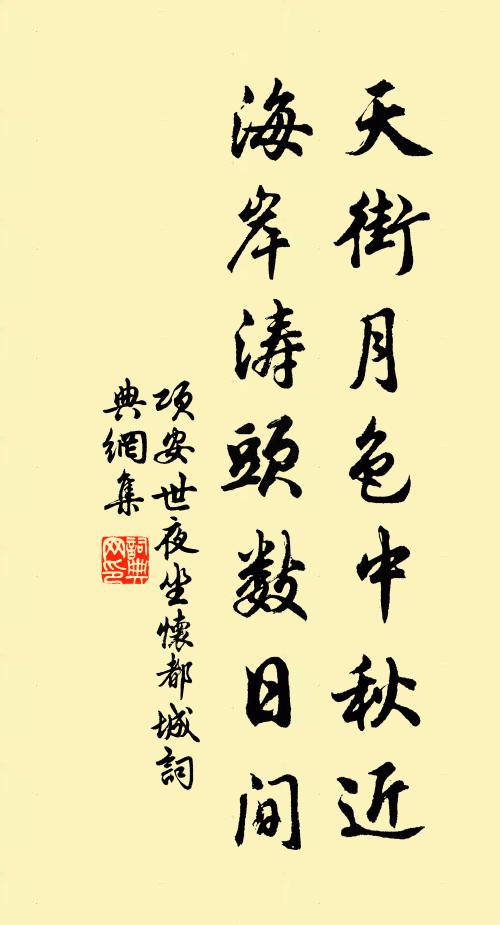 天街月色中秋近
海岸涛頭数日間
項安世夜坐懷都城詞
典網集
詞典
网印